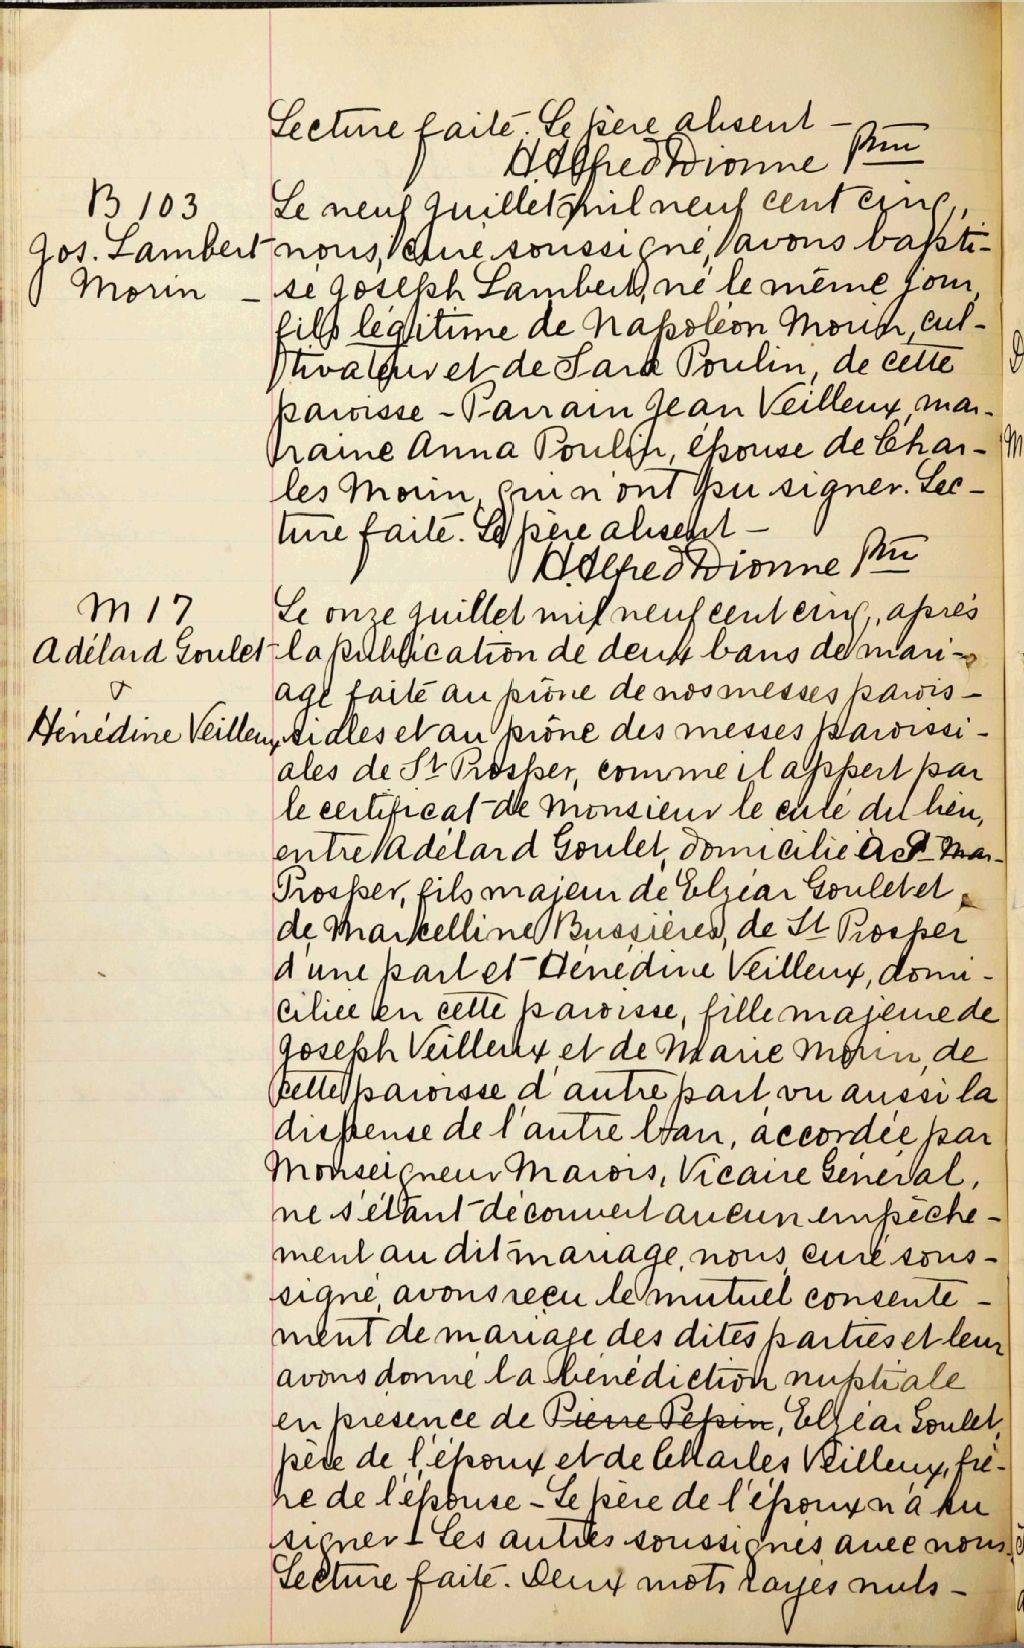 Lecture faite. Le père absent –
H Alfred Dionne Ptre
B 103
Jos. Lambert
Morin –
Le neuf Juillet mil neuf cent cinq,
nous, curé soussigné, avons bapti-
sé Joseph Lambert, né le même jour,
fils légitime de Napoléon Morin, cul-
tivateur et de Sara Poulin, de cette
paroisse – Parrain Jean Veilleux, mar-
raine Anna Poulin, épouse de Char-
les Morin, qui n'ont pu signer. Lec-
ture faite. Le père absent –
H. Alfred Dionne Ptre
M 17
Adélard Goulet
&
Hénédine Veilleux
Le onze Juillet mil neuf cent cinq, après
la publication de deux bans de mari-
age faite au prône de nos messes parois-
siales et au prône des messes paroissi-
ales de St Prosper, comme il appert par
le certificat de Monsieur le curé du lieu,
entre Adélard Goulet, domicilié à St
Prosper, fils majeur de Elzéar Goulet et
de Marcelline Bussières, de St Prosper
d'une part et Hénédine Veilleux, domi-
ciliée en cette paroisse, fille majeure de
Joseph Veilleux et de Marie Morin, de
cette paroisse d'autre part, vu aussi la
dispense de l'autre ban, accordée par
Monseigneur Marois, Vicaire Général,
ne s'étant découvert aucun empêche-
ment au dit mariage, nous, curé sous-
signé, avons reçu le mutuel consente-
ment de mariage des dites parties et leur
avons donné la bénédiction nuptiale
en présence de Pierre Pépin, Elzéar Goulet,
père de l'époux et de Charles Veilleux, frè-
re de l'épouse – Le père de l'époux n'a su
signer – Les autres soussignés avec nous.
Lecture faite. Deux mots rayés nuls –